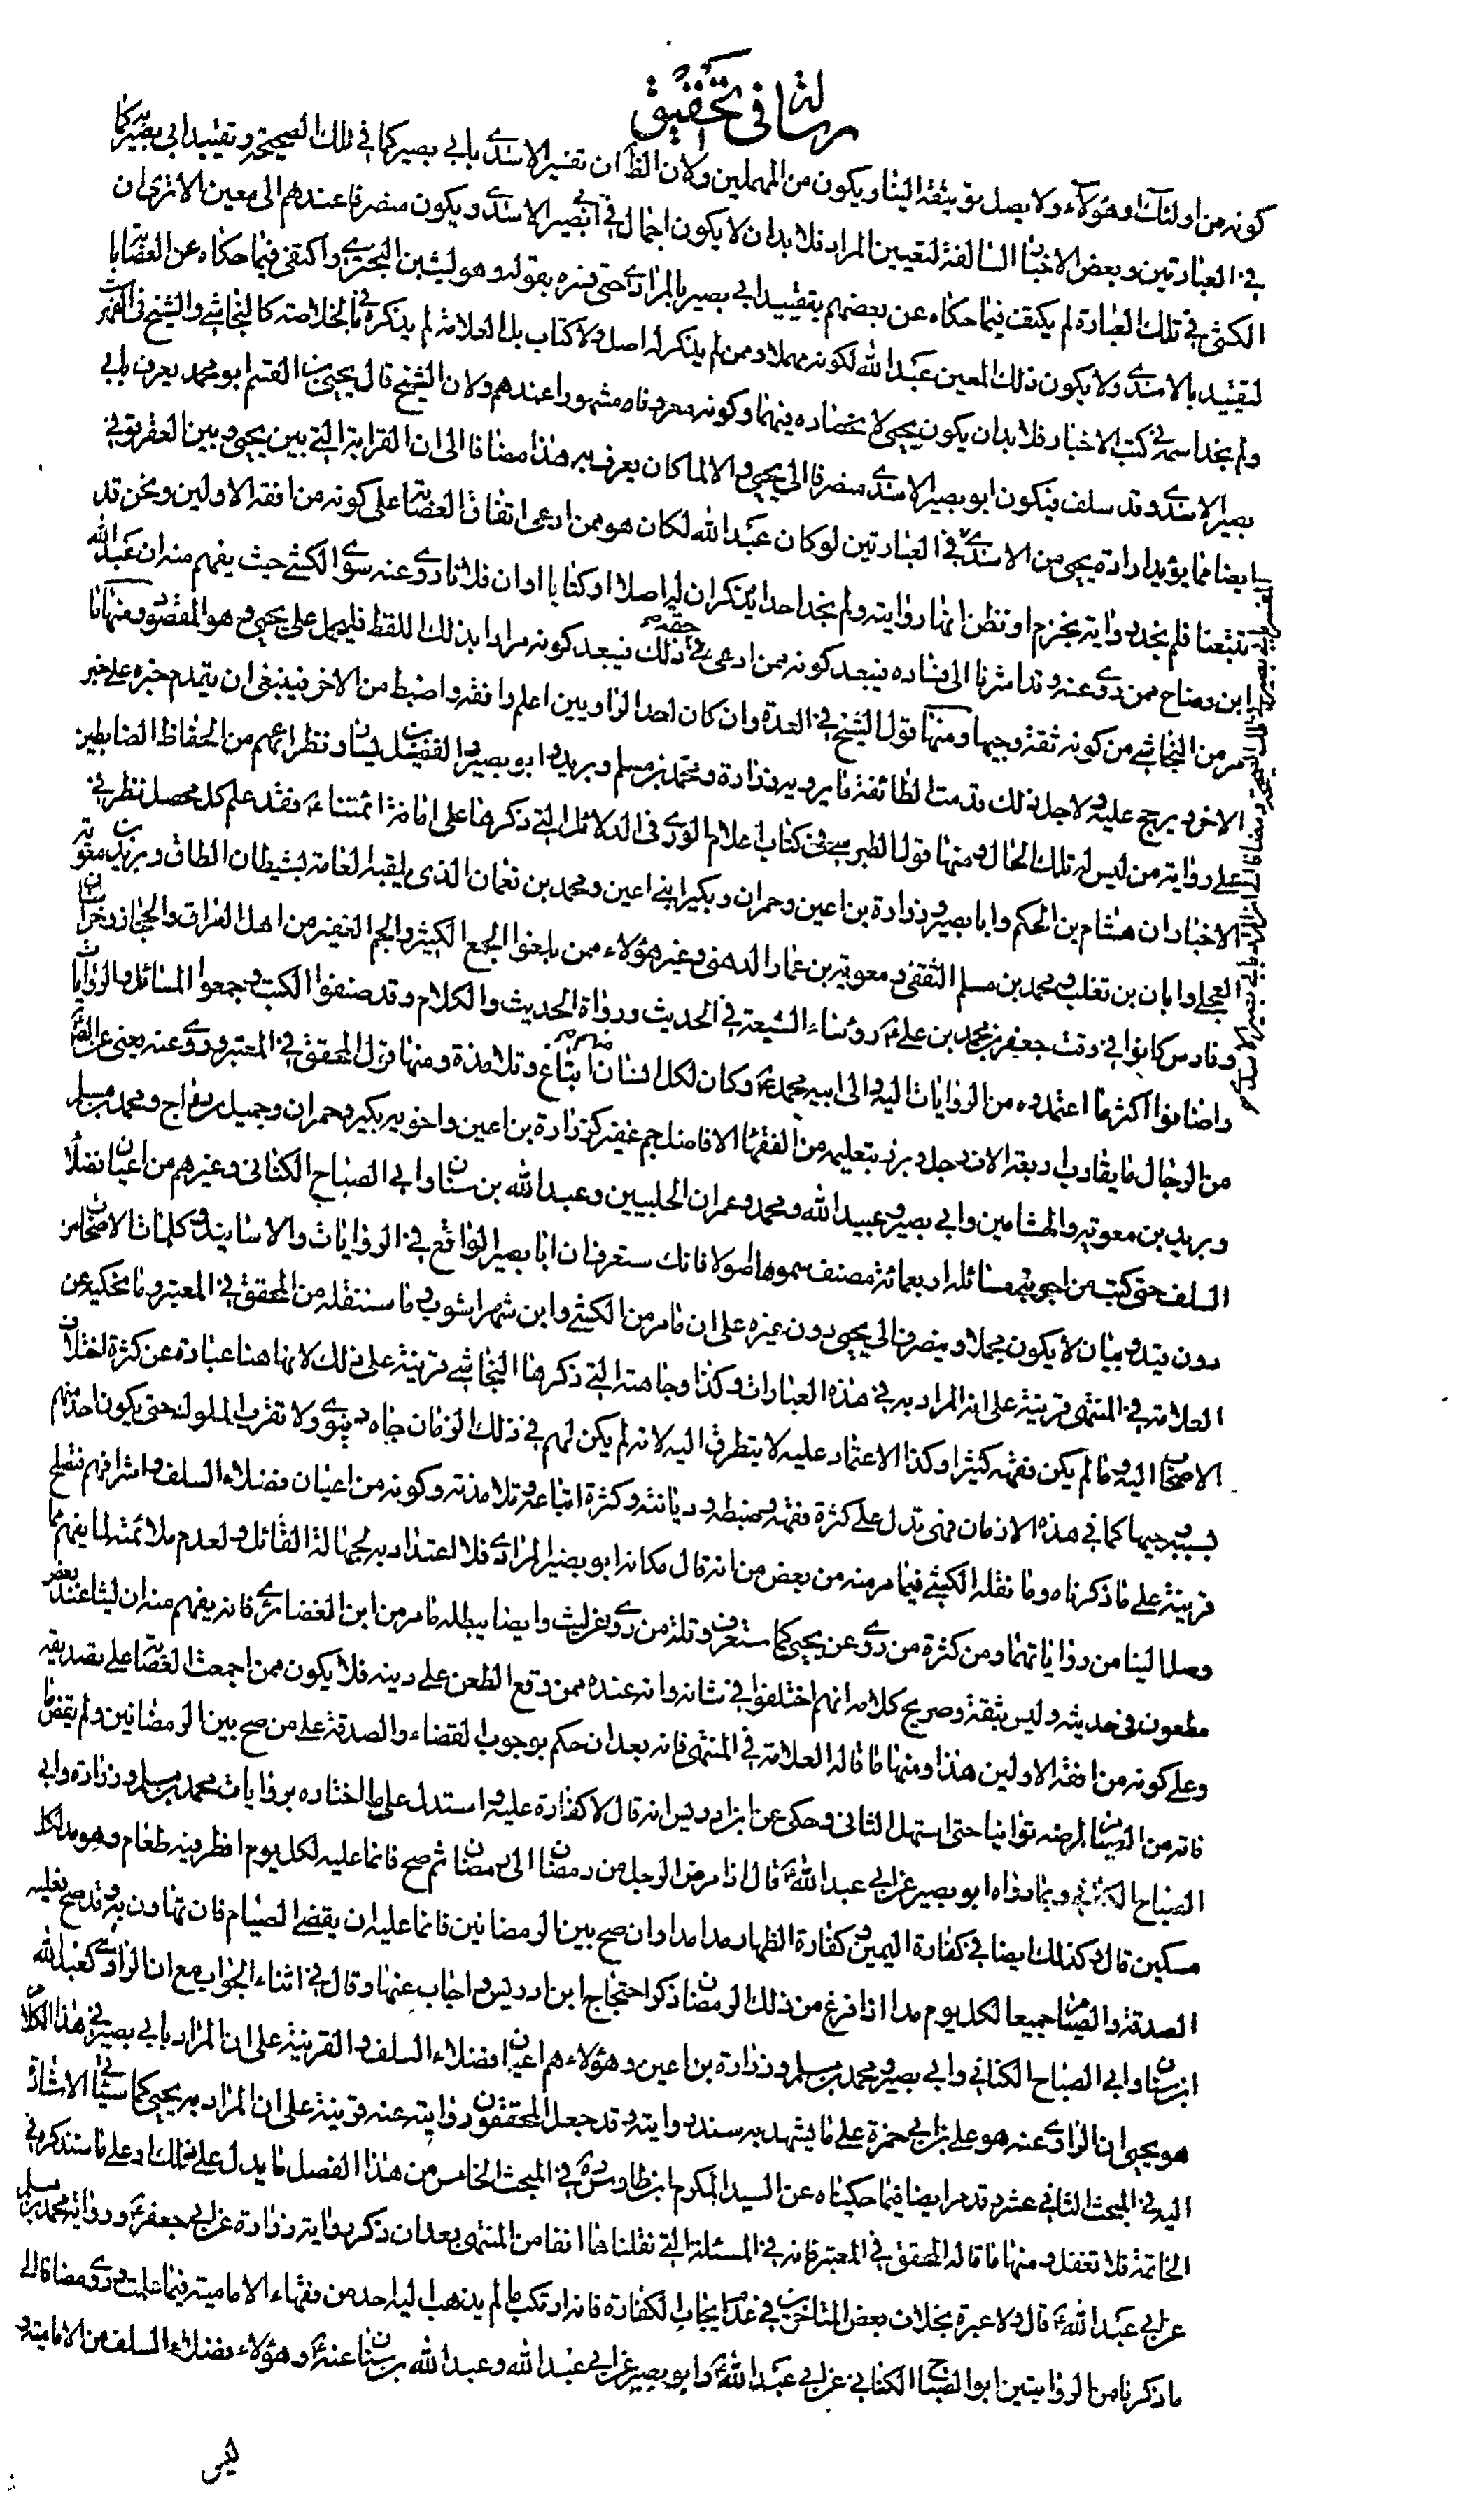 رسالة فى تحقيق
كونه من اولئك وهؤلاء ولا يصل توثيقه الينا ويكون من المهملين ولان الظ ان تفسير الاسدي بابي بصير كما في تلك الصحيحة وتقييد ابي بصير به كما
في العبارتين وبعض الاخبار السالفة لتعيين المراد فلا بد ان لا يكون اجمال في ابي بصير الاسدي ويكون منصرفا عندهم الى معين الا ترى ان
الكشي في تلك العبارة لم يكتف فيما حكاه عن بعضهم بتقييد ابي بصير بالمرادي حتى فسره بقوله وهو ليث بن البختري واكتفى فيما حكاه عن العصابة با
لتقييد بالاسدي ولا يكون ذلك المعين عبد الله لكونه مهملا ومن لم يذكر له اصل ولا كتاب بل العلامة لم يذكره في الخلاصة كالنجاشي والشيخ في الفهرست
ولم نجد اسمه في كتب الاخبار فلا بد ان يكون يحيى لانحصاره فيهما وكونه معروفا مشهورا عندهم ولان الشيخ قال يحيى بن القسم ابو محمد يعرف بابي
بصير الاسدي وقد سلف فيكون ابو بصير الاسدي منصرفا الى يحيى والا لما كان يعرف به هذا مضافا الى ان القرابة التي بين يحيى وبين العقرقوفي
ايضا مما يؤيد ارادة يحيى من الاسدي في العبارتين لو كان عبد الله لكان هو ممن ادعى اتفاق العصابة على كونه من افقه الاولين ونحن قد
تتبعنا فلم نجد رواية نجزم او نظن انها روايته ولم نجد احدا يذكر ان له اصلا او كتابا او ان فلانا روى عنه سوى الكشي حيث يفهم منه ان عبد الله
ابن وضاح ممن روى عنه وقد اشرنا الى فساده فيبعد كونه ممن ادعى في حقه ذلك فيبعد كونه مرادا بذلك اللفظ فليحمل على يحيى وهو المقصود ومنها ما
مر من النجاشي من كونه ثقة وجيها ومنها قول الشيخ في العدة وان كان احد الراويين اعلم وافقه واضبط من الاخر فينبغي ان يقدم خبره على خبر
الاخر ويرجح عليه ولاجل ذلك قدمت الطائفة ما يرويه زرارة ومحمد بن مسلم وبريد وابو بصير والفضيل بن يسار ونظرائهم من الحفاظ الضابطين
على رواية من ليس له تلك الحال ومنها قول الطبرسي في كتاب اعلام الورى في الدلائل التي ذكرها على امامة ائمتنا ع فقد علم كل محصل نظر في
الاخبار ان هشام بن الحكم وابا بصير وزرارة بن اعين وحمران وبكير ابني اعين ومحمد بن نعمان الذي يلقبه العامة بشيطان الطاق وبريد بن معوية
العجلي وابان بن تغلب ومحمد بن مسلم الثقفي ومعوية بن عمار الدهني وغير هؤلاء ممن بلغوا الجمع الكثير والجم الغفير من اهل العراق والحجاز وخراسان
وفارس كانوا في وقت جعفر بن محمد بن علي ع رؤساء الشيعة في الحديث ورواة الحديث والكلام وقد صنفوا الكتب وجمعوا المسائل والروايات
واضافوا اكثر ما اعتمدوه من الروايات اليه والى ابيه محمد ع وكان لكل انسان منهم اتباع وتلامذة ومنها قول المحقق في المعتبر وروى عنه يعني عن الص ع
من الرجال ما يقارب اربعة الاف رجل وبرز بتعليمه من الفقهاء الافاضل جم غفير كزرارة بن اعين واخويه بكير وحمران وجميل بن دراج ومحمد بن مسلم
وبريد بن معوية والهشامين وابي بصير وعبيد الله ومحمد وعمران الحلبيين وعبد الله بن سنان وابي الصباح الكناني وغيرهم من اعيان فضلاء
السلف حتى كتب من اجوبة مسائله اربعمائة مصنف سموها اصولا فانك ستعرف ان ابا بصير الواقع في الروايات والاسانيد وكلمات الاصحاب من
دون قيد وبيان لا يكون مجملا وينصرف الى يحيى دون غيره على ان ما مر من الكشي وابن شهراشوب وما سننقله من المحقق في المعتبر وما نحكيه عن
العلامة في المنتهى قرينة على انه المراد به في هذه العبارات وكذا وجاهته التي ذكرها النجاشي قرينة على ذلك لانها هنا عبارة عن كثرة اختلاف
الاصحاب اليه وما لم يكن فقهه كثيرا وكذا الاعتماد عليه لا يتطرق اليه لانه لم يكن لهم في ذلك الزمان جاه دنيوي ولا تقرب الملوك حتى يكون احد منهم
بسببه وجيها كما في هذه الازمان فهى تدل على كثرة فقهه وضبطه وديانته وكثرة اتباعه وتلامذته وكونه من اعيان فضلاء السلف واشرافهم فتصلح
قرينة على ما ذكرناه وما نقله الكشي فيما مر منه من بعض من انه قال مكانه ابو بصير المرادي فلا اعتداد به لجهالة القائل ولعدم ملائمته لما يفهم مما
وصل الينا من رواياتهما ومن كثرة من روى عن يحيى كما ستعرف وقلة من روى عن ليث وايضا يبطله ما مر من ابن الغضائري فانه يفهم منه ان ليثا عند بعض
مطعون في حديثه وليس بثقة وصريح كلامه انهم اختلفوا في شانه وانه عنده ممن وقع الطعن على دينه فلا يكون ممن اجمعت العصابة على تصديقه
وعلى كونه من افقه الاولين هذا ومنها ما قاله العلامة في المنتهى فانه بعد ان حكم بوجوب القضاء والصدقة على من صح بين الرمضانين ولم يقض ما
فاته من الصيام لمرضه توانيا حتى استهل الثاني وحكى عن ابن ادريس انه قال لا كفارة عليه واستدل على ما اختاره بروايات محمد بن مسلم وزرارة وابي
الصباح الكناني وبما رواه ابو بصير عن ابي عبد الله ع قال اذا مرض الرجل من رمضان الى رمضان ثم صح فانما عليه لكل يوم افطر فيه طعام وهو مد لكل
مسكين قال وكذلك ايضا في كفارة اليمين وكفارة الظهار مدا مدا وان صح بين الرمضانين فانما عليه ان يقضي الصيام فان تهاون به وقد صح فعليه
الصدقة والصيام جميعا لكل يوم مدا اذا فرغ من ذلك الرمضان ذكر احتجاج ابن ادريس واجاب عنها وقال في اثناء الجواب مع ان الراوي كعبد الله
ابن سنان وابي الصباح الكناني وابي بصير ومحمد بن مسلم وزرارة بن اعين وهؤلاء هم اعيان فضلاء السلف والقرينة على ان المراد بابي بصير في هذا الكلام
هو يحيى ان الراوي عنه هو علي بن ابي حمزة على ما يشهد به سند روايته وقد جعل المحققون روايته عنه قرينة على ان المراد به يحيى كما سيأتي الاشارة
اليه في المبحث الثاني عشر وقد مر ايضا فيما حكيناه عن السيد المكرم ابن طاوس ره في المبحث الخامس من هذا الفصل ما يدل على ذلك او على ما سنذكر في
الخاتمة فلا تغفل ومنها ما قاله المحقق في المعتبر فانه في المسئلة التي نقلناها انفا من المنتهى بعد ان ذكر رواية زرارة عن ابي جعفر ع ورواية محمد بن مسلم
عن ابي عبد الله ع قال ولا عبرة بخلاف بعض المتاخرين في عدم ايجاب الكفارة فانه ارتكب ما لم يذهب اليه احد من فقهاء الامامية فيما علمت وروى مضافا الى
ما ذكرنا من الروايتين ابو الصباح الكناني عن ابي عبد الله ع وابو بصير عن ابي عبد الله وعبد الله بن سنان عنه ع وهؤلاء فضلاء السلف من الامامية و
ليس